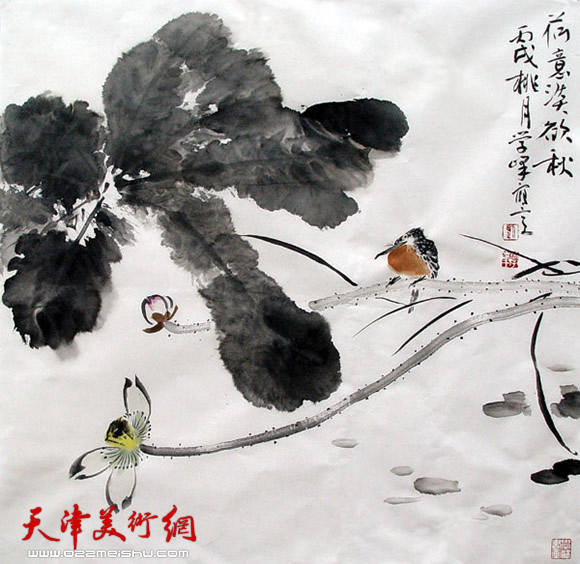 荷意淡欲秋
丙戌桃月学峰写意
天津美術網
www.022meishu.com